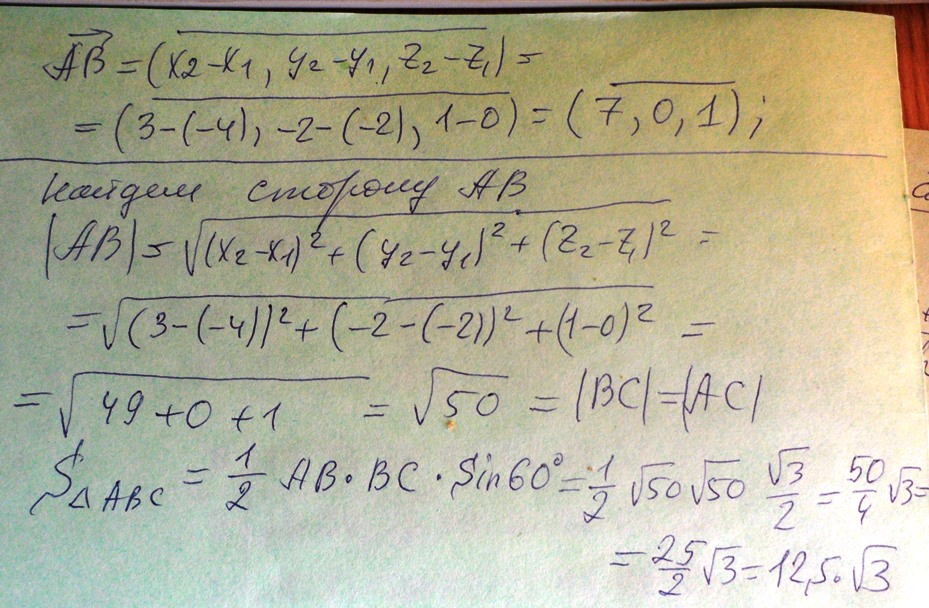 AB = (x₂-x₁, y₂-y₁, z₂-z₁) =
= (3-(-4), -2-(-2), 1-0) = (7, 0, 1);
Найдем сторону AB
|AB| = √(x₂-x₁)² + (y₂-y₁)² + (z₂-z₁)² =
= √(3-(-4))² + (-2-(-2))² + (1-0)² =
= √49+0+1 = √50 = |BC| = |AC|
S△ABC = 1/2 AB · BC · Sin60° = 1/2 √50 √50 √3/2 = 50/4 √3 =
= 25/2 √3 = 12,5 · √3